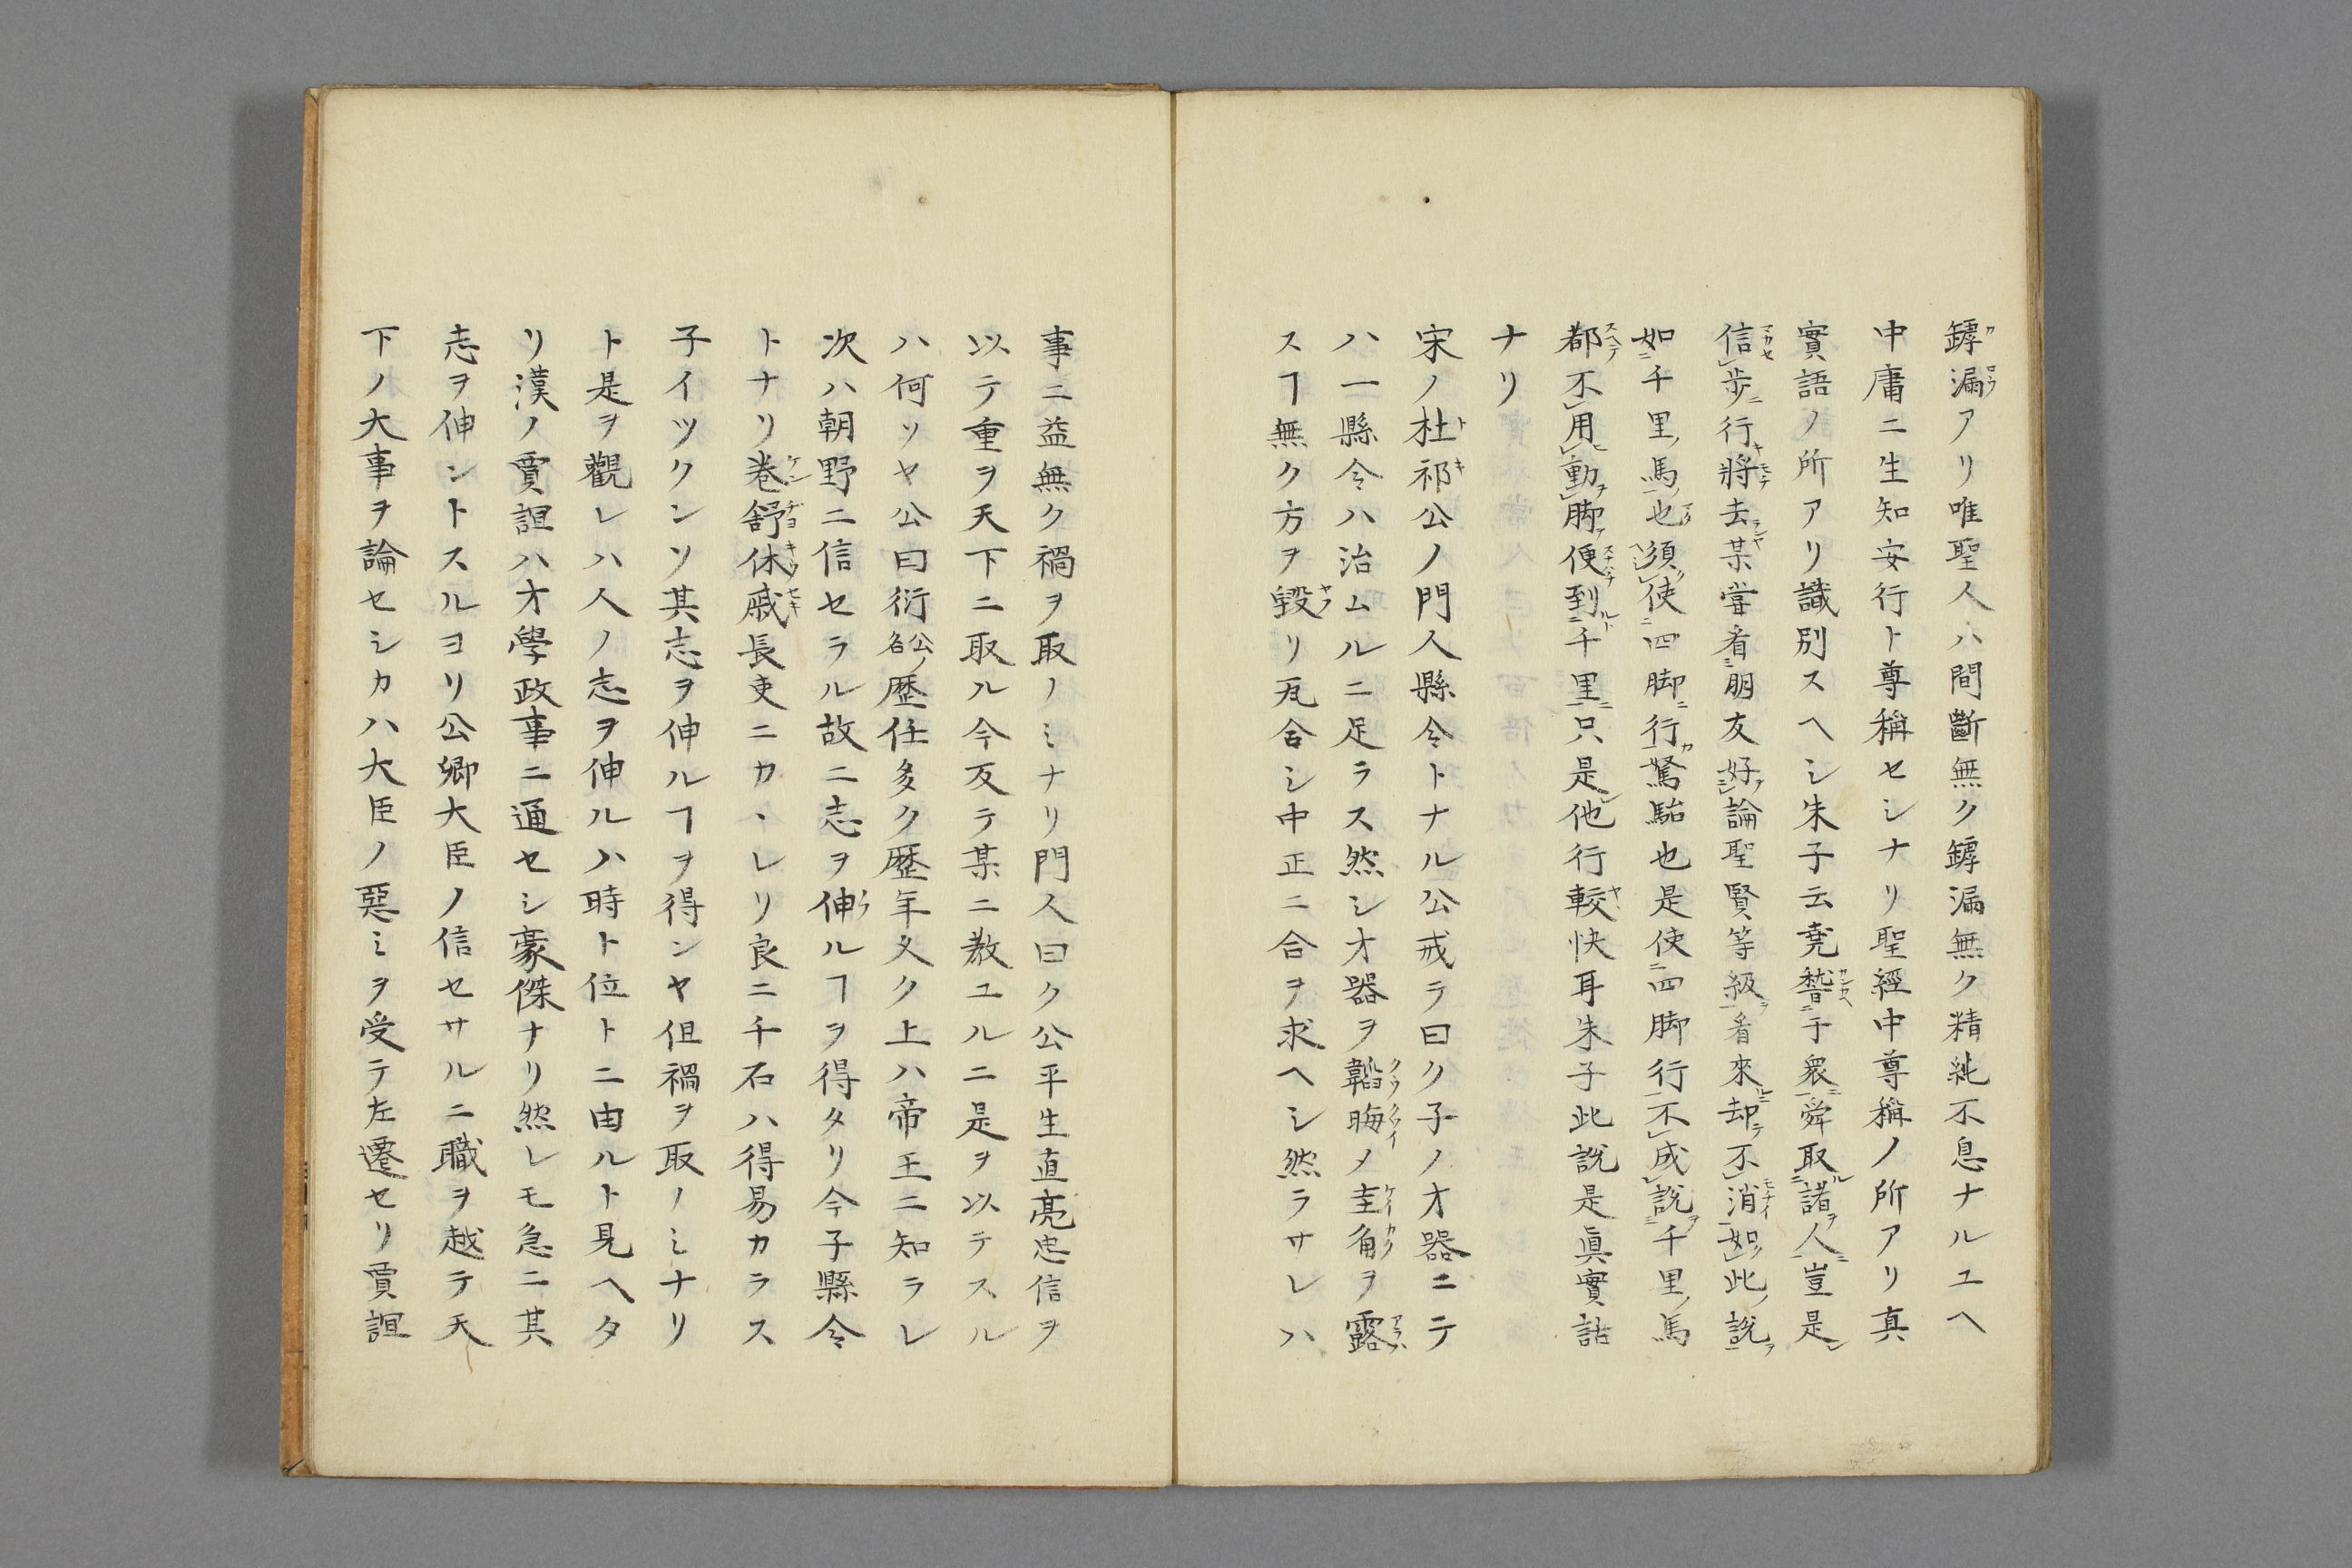 罅漏アリ唯聖人ハ間斷無ク罅漏無ク精純不息ナルユヘ
中庸ニ生知安行ト尊稱セシナリ聖經中尊稱ノ所アリ真
實語ノ所アリ識別スヘシ朱子云堯稽于衆舜取諸人豈是
信歩行將去某嘗看朋友好論聖賢等級看來却不消如此説
如千里馬也須使四脚行駑駘也是使四脚行不成説千里馬
都不用動脚便到千里只是他行較快耳朱子此説是眞實話
ナリ
宋ノ杜祁公ノ門人縣令トナル公戒テ曰ク子ノ才器ニテ
ハ一縣令ハ治ムルニ足ラス然シ才器ヲ韜晦メ圭角ヲ露
スヿ無ク方ヲ毀リ瓦合シ中正ニ合ヲ求ヘシ然ラサレハ
事ニ益無ク禍ヲ取ノミナリ門人曰ク公平生直亮忠信ヲ
以テ重ヲ天下ニ取ル今反テ某ニ教ユルニ是ヲ以テスル
ハ何ソヤ公曰衍公ノ名歴任多ク歴年久ク上ハ帝王ニ知ラレ
次ハ朝野ニ信セラル故ニ志ヲ伸ルヿヲ得タリ今子縣令
トナリ巻舒休戚長吏ニカヽレリ良ニ千石ハ得易カラス
子イツクンソ其志ヲ伸ルヿヲ得ンヤ但禍ヲ取ノミナリ
ト是ヲ觀レハ人ノ志ヲ伸ルハ時ト位トニ由ルト見ヘタ
リ漢ノ賈誼ハ才學政事ニ通セシ豪傑ナリ然レモ急ニ其
志ヲ伸ントスルヨリ公卿大臣ノ信セサルニ職ヲ越テ天
下ノ大事ヲ論セシカハ大臣ノ惡ミヲ受テ左遷セリ賈誼